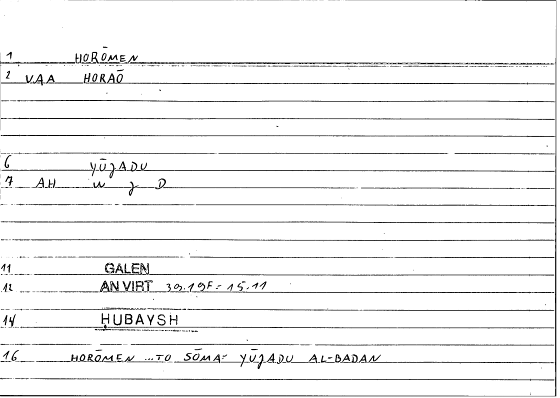 1 HORŌMEN
2 V.A.A HORAŌ
6 YŪJADU
7 AH w j D
11 GALEN
12 AN VIRT 39.19F = 15.11
14 ḤUBAYSH
16 HORŌMEN ...TO SŌMA = YŪJADU AL-BADAN